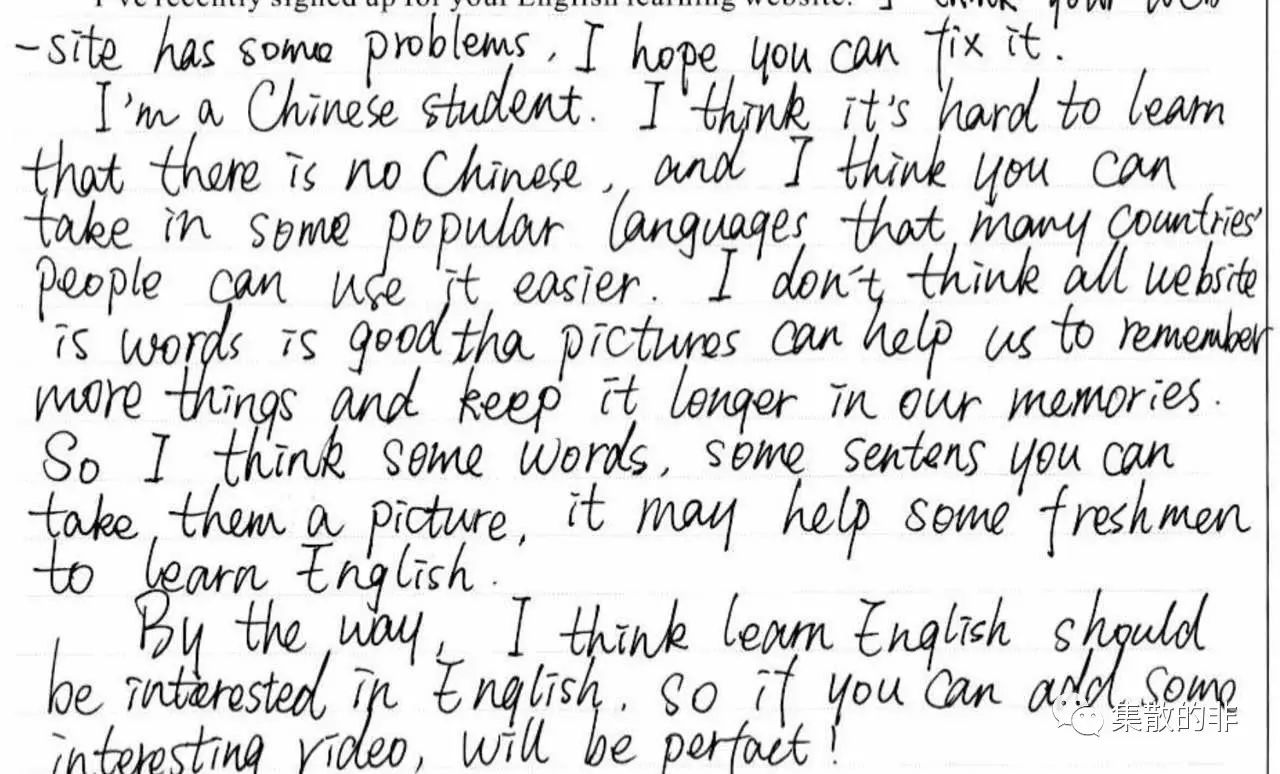 I've recently signed up for your English learning website. I think your web
-site has some problems, I hope you can fix it.
I'm a Chinese student. I think it's hard to learn
that there is no Chinese, and I think you can
take in some popular languages that many countries'
people can use it easier. I don't think all website
is words is good tha pictures can help us to remember
more things and keep it longer in our memories.
So I think some words, some sentens you can
take them a picture, it may help some freshmen
to learn English.
By the way, I think learn English should
be interested in English. so if you can add some
interesting video, will be perfact!
集散的非